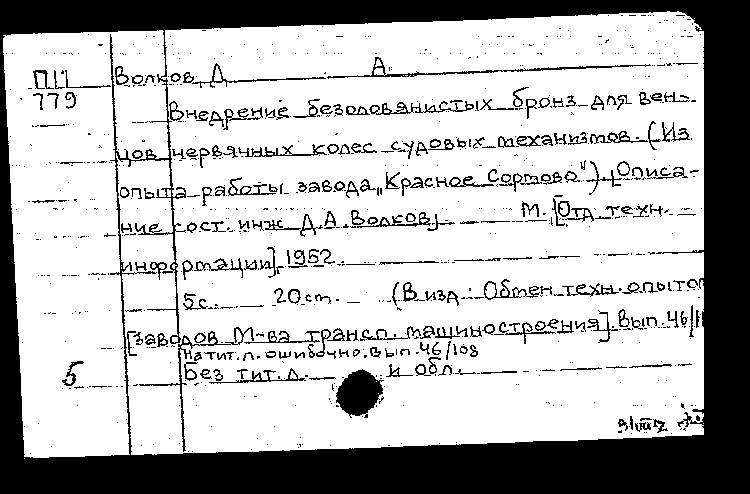 П11 Волков, Д А.
779 Внедрение безоловянистых бронз для вен-
цов червянных колес судовых механизмов. (Из
опыта работы завода „Красное Сормово"). [Описа-
ние сост. инж Д.А.Волков] М. [Отд техн.
информации], 1952.
5с. 20 cm. (В изд.: Обмен техн. опытом
[заводов М-ва трансп. машиностроения]. Вып. 46/
На тит. л. ошибочно: вып. 46/108
5 Без тит. л. и обл.